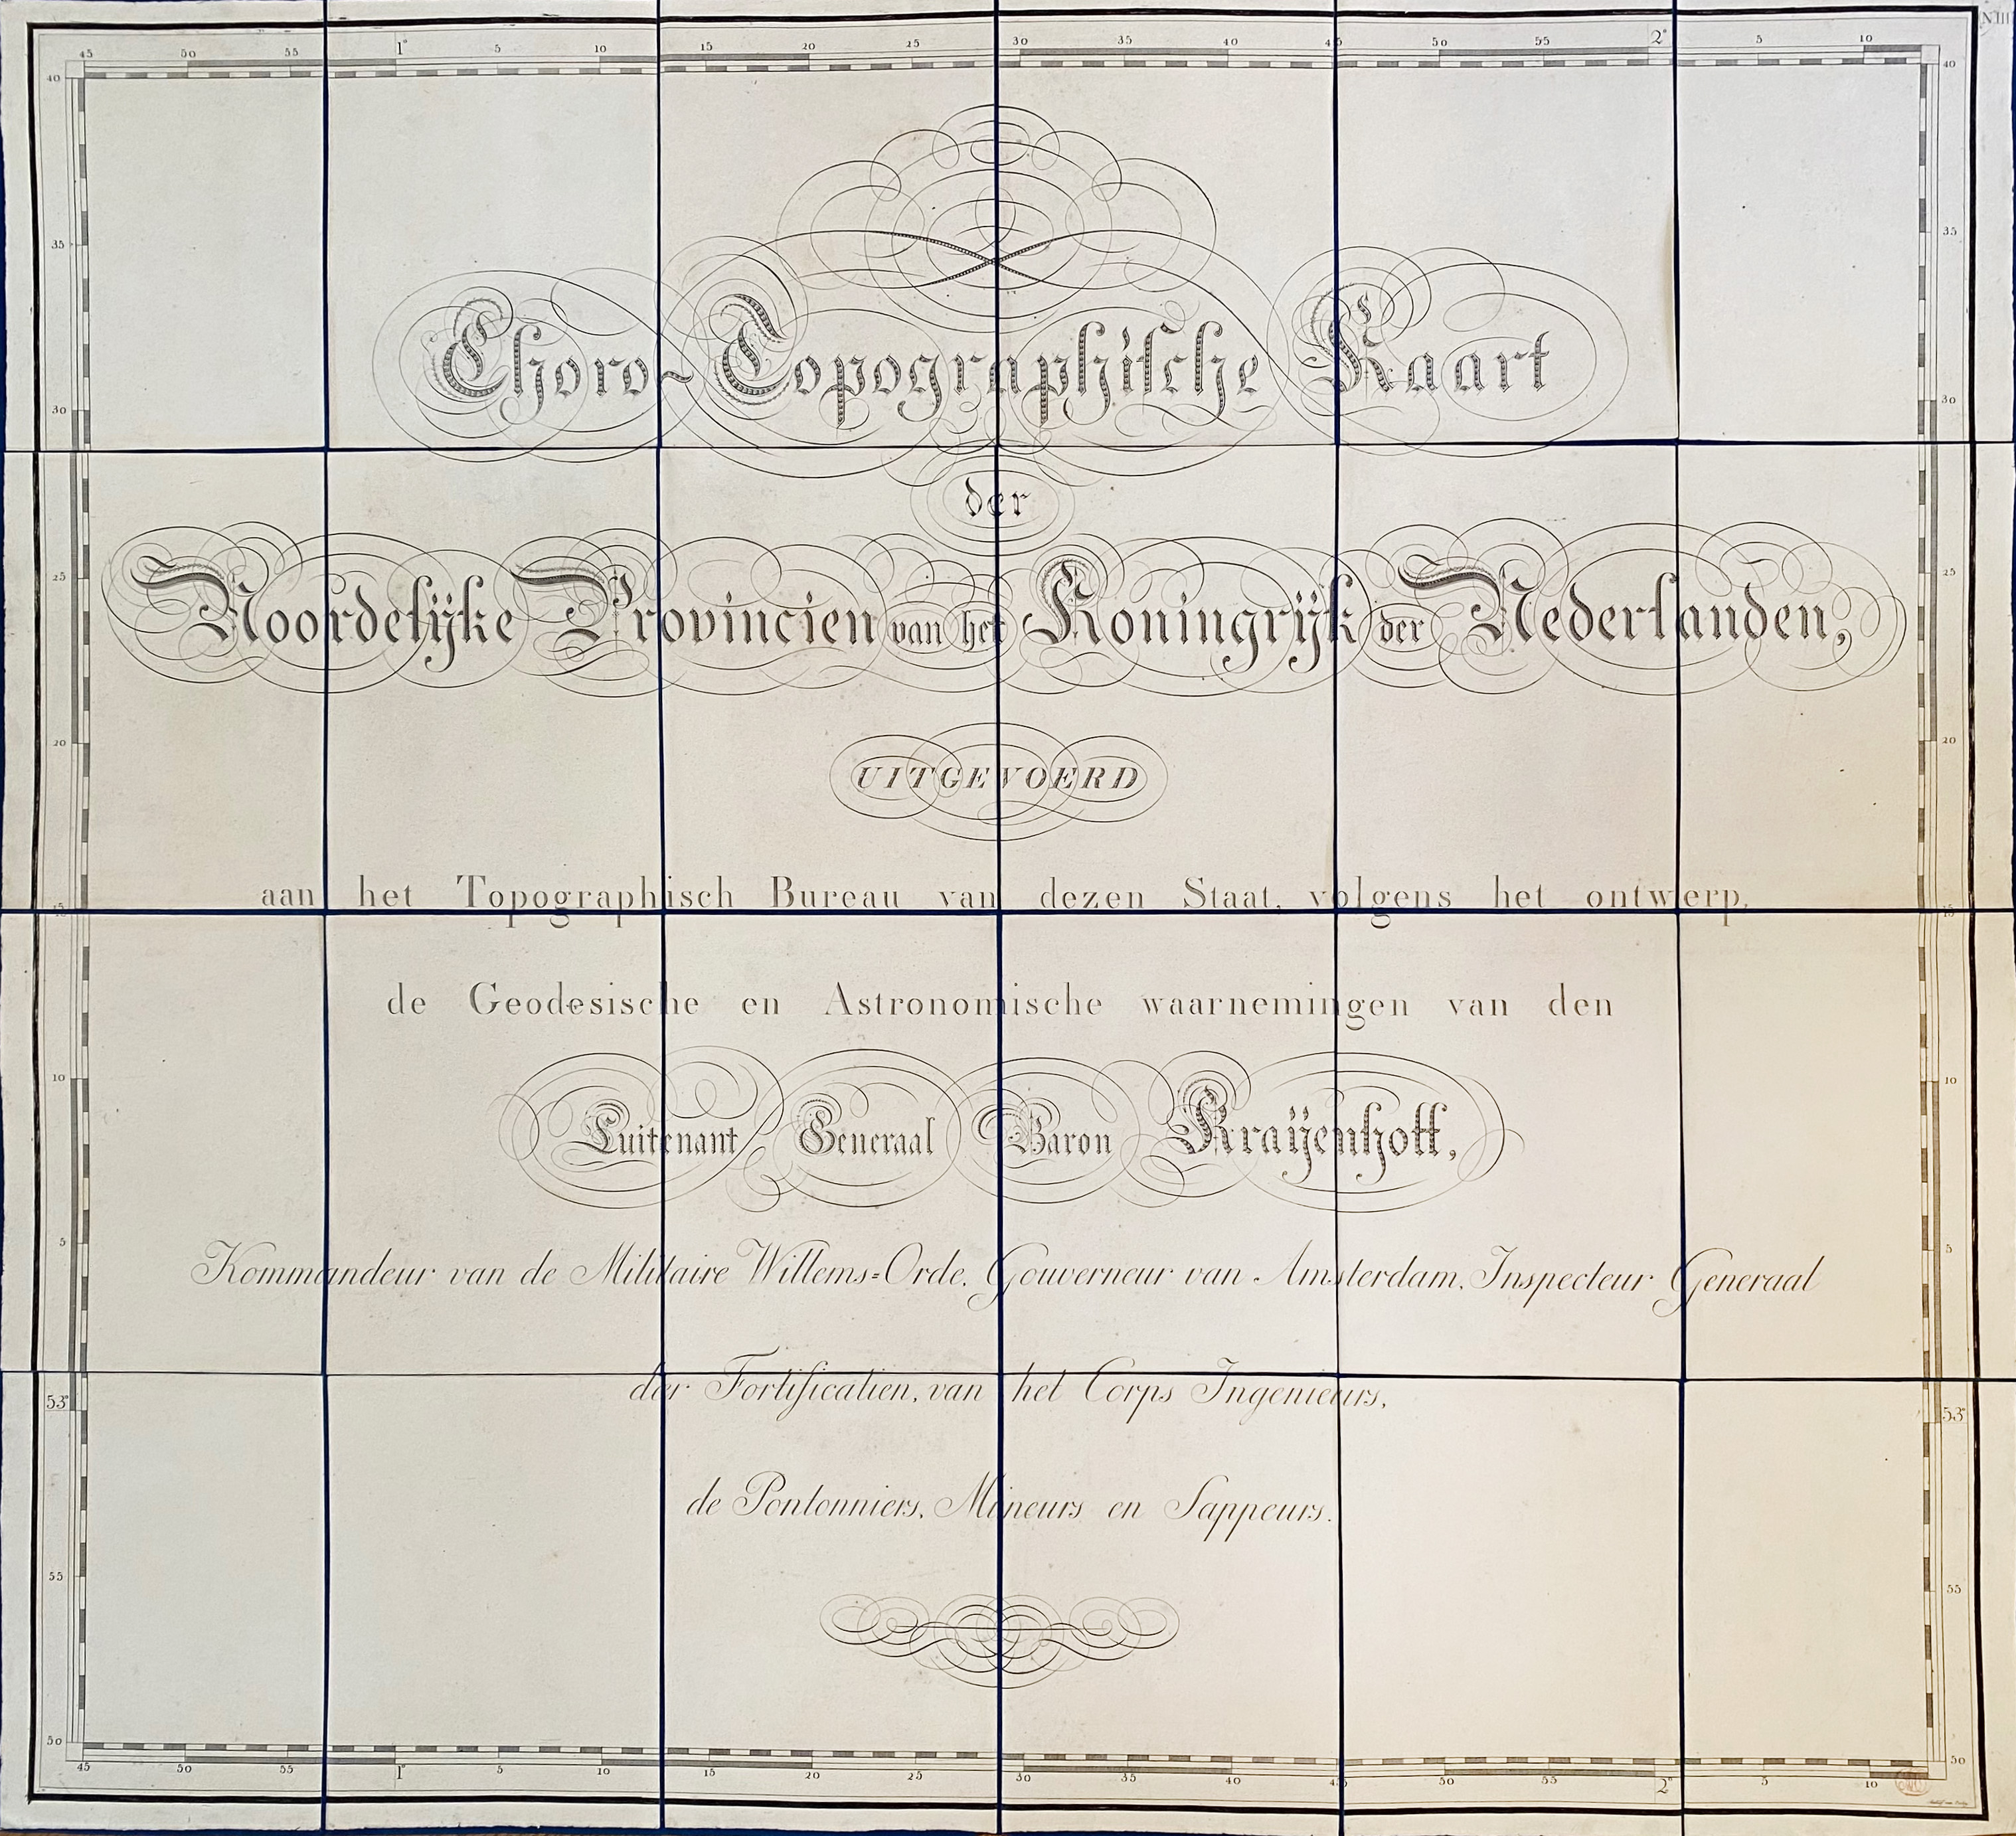 N.III
45 50 55 1° 5 10 15 20 25 30 35 40 45 50 55 2° 5 10
40 40
35 35
Choro-Topographische Kaart
30 30
der
25 25
Noordelijke Provincien van het Koningrijk der Nederlanden,
20 20
UITGEVOERD
aan het Topographisch Bureau van dezen Staat, volgens het ontwerp,
15 15
de Geodesische en Astronomische waarnemingen van den
10 10
Luitenant Generaal Baron Kraijenhoff,
5 5
Kommandeur van de Militaire Willems=Orde, Gouverneur van Amsterdam, Inspecteur Generaal
der Fortificatien, van het Corps Ingenieurs,
53° 53°
de Pontonniers, Mineurs en Sappeurs.
55 55
50 50
45 50 55 1° 5 10 15 20 25 30 35 40 45 50 55 2° 5 10